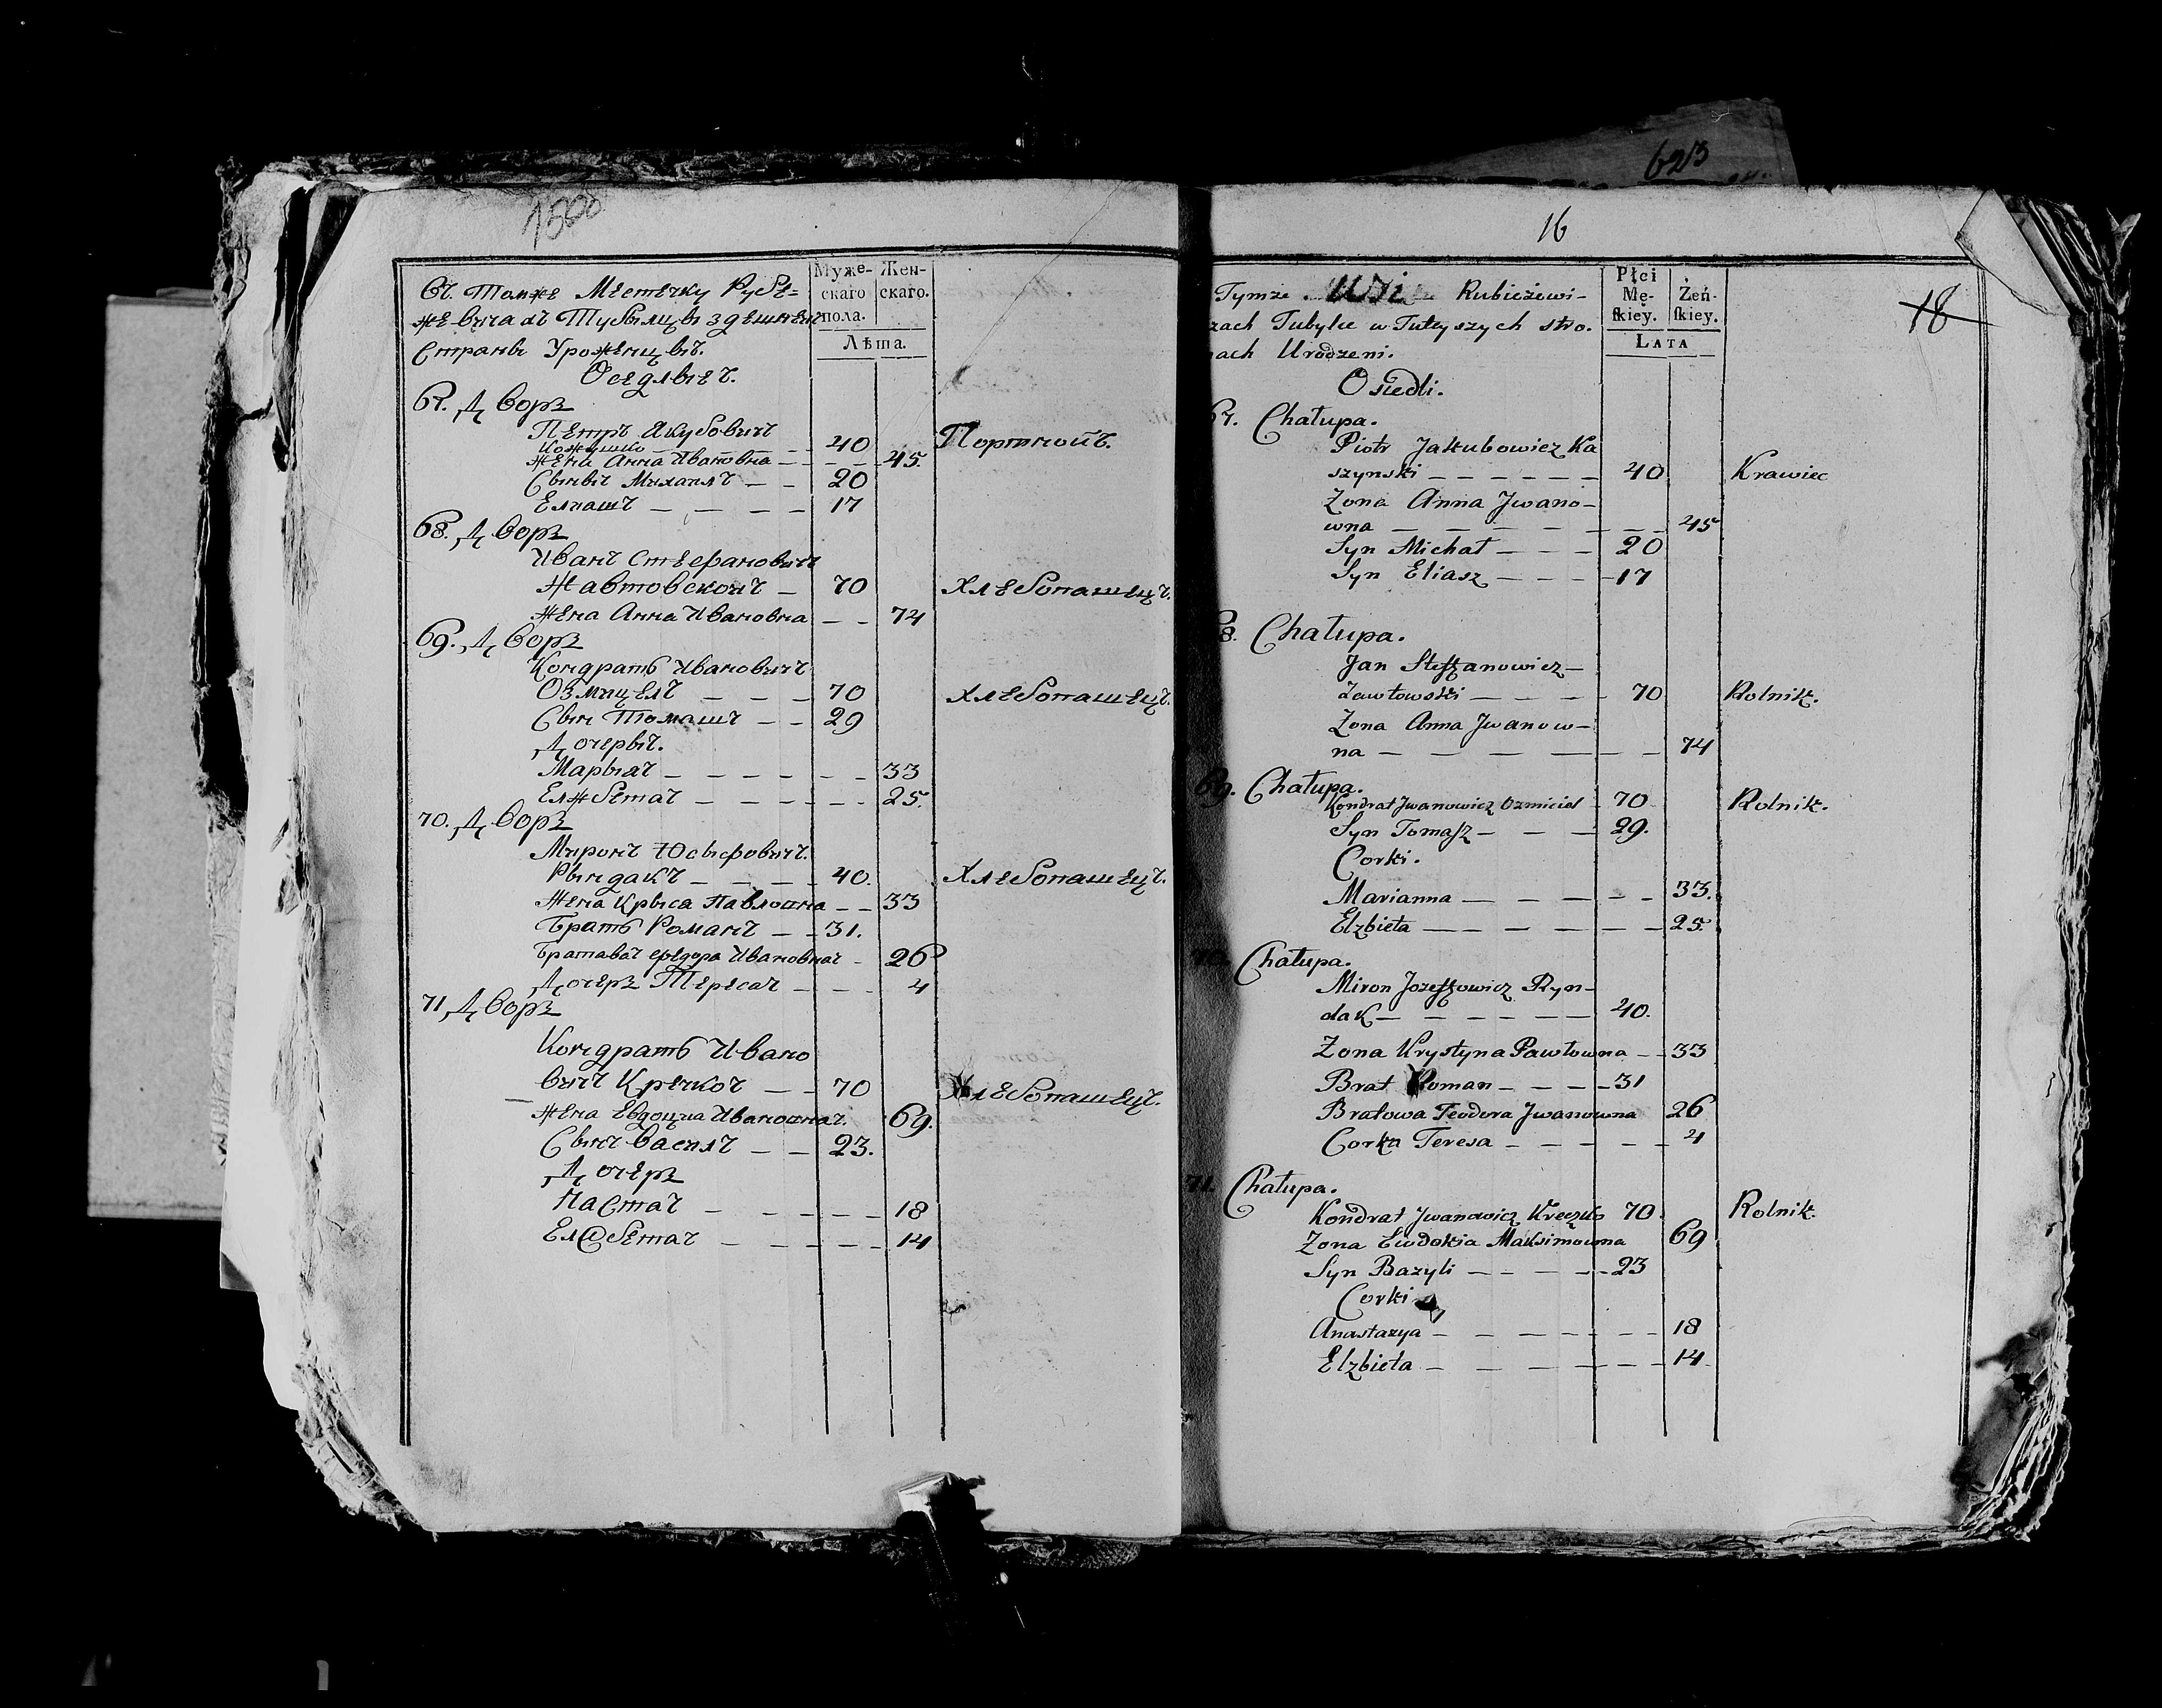 1500
Муже-
скаго
пола.
Жен-
скаго.
Лѣта.
Въ томже Местечку Рубе=
жевичахъ Тубылцы здешнеи
Страны Уроженцвъ.
Оседлыеъ.
67. Дворъ
Петръ Якубовичъ
Кожушко — — — — 40 Портнойъ.
Жена Анна Ивановна — — — 45.
Сынвъ Михаилъ — — 20
Елиашъ — — — — 17
68. Дворъ
Иванъ Стефановичъ
Жавтовскойъ — 70 Хлебопашецъ.
Жена Анна Ивановна — — 74
69. Дворъ
Кондратъ Ивановичъ
Озмицелъ — — — 70 Хлебопашецъ.
Сын Томашъ — — 29
Дочерыъ.
Марыяъ — — — — — — 33
Елжбетаъ — — — — — — 25.
70. Дворъ
Миронъ Юсыфовичъ.
Рындакъ — — — — 40. Хлебопашецъ.
Жена Крыса Павлошна — — 33
Братъ Романъ — — 31.
Братаваъ Ефедора Ивановнаъ — 26
Дочеръ Тересаъ — — — 4
71 Дворъ
Кондратъ Ивано
вичъ Кречкоъ — — 70 Хлебопашецъ.
Жена Евдоциа Иваношнаъ. 69.
Сынъ Василъ — — 23.
Дочеръ
Настаъ — — — — — 18
Елжбетаъ — — — — — 14
623
16
18
Płci
Mę-
skiey.
Żeń-
skiey.
LATA
Tymże Rubieżewi-
zach Tubylce w Tuteyszych stro.
nach Urodzeni.
Osiedli.
67. Chałupa.
Piotr Jakubowicz Ka
szynski — — — — — — 40 Krawiec
Zona Anna Jwano-
wna — — — — — — — 45
Syn Michał — — — 20
Syn Eliasz — — — —17
68. Chałupa.
Jan Steffanowicz —
Zawtowski — — — — 70 Rolnik.
Zona Anna Jwanow-
na — — — — — — — 74
69. Chałupa.
Kondrat Jwanowicz Ozmiciel — 70 Rolnik.
Syn Tomasz — — — 29.
Corki.
Marianna — — — — — — 33.
Elzbieta — — — — — — — 25.
70. Chałupa.
Miron Jozeffowicz Ryn-
dak — — — — — — — 40.
Zona Krystyna Pawłowna — — 33
Brat Roman — — — —31
Bratowa Teodora Jwanowna 26
Corka Teresa — — — — — 4
71. Chałupa.
Kondrat Jwanowicz Kreczko 70. Rolnik.
Zona Ewdokia Maksimowna 69
Syn Bazyli — — — — —23
Corki
Anastazya — — — — — — — 18
Elzbieta — — — — — — — 14